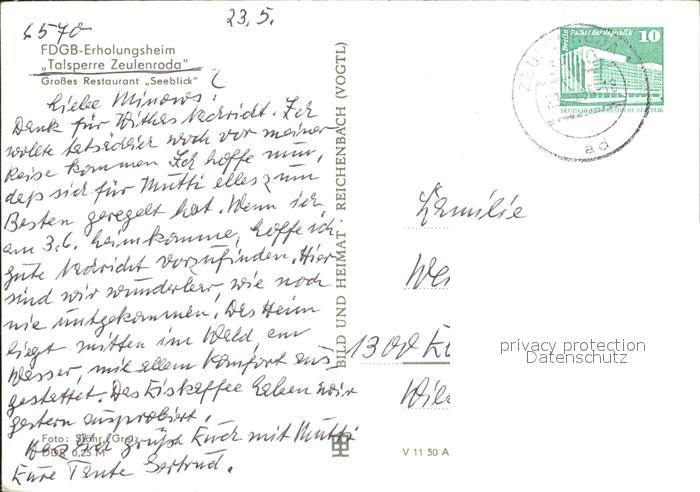 23. 5.
6570
FDGB-Erholungsheim
„Talsperre Zeulenroda"
Großes Restaurant „Seeblick"
Liebe Minows!
Dank für Nachricht. Ich
wollte tatsächlich noch vor meiner
Reise kommen. Ich hoffe nun,
daß sich für Mutti alles zum
Besten geregelt hat. Wenn ich
am 3.6. heimkomme, hoffe ich
gute Nachricht vorzufinden. Hier
sind wir wunderbar, wie noch
nie untgekommen! Das Heim
liegt mitten im Wald, am
Wasser, mit allem Komfort aus-
gestattet. Das Eiskaffee haben wir
gestern ausprobiert.
Foto: Stöhr, Greiz
DDR 0,25 M
grüßt Euch mit Mutti
Eure Tante Gertrud.
BILD UND HEIMAT · REICHENBACH (VOGTL)
V 11 50 A
Berlin Palast der Republik
10
DEUTSCHE DEMOKRATISCHE REPUBLIK
ad
Familie
1300
privacy protection
Datenschutz